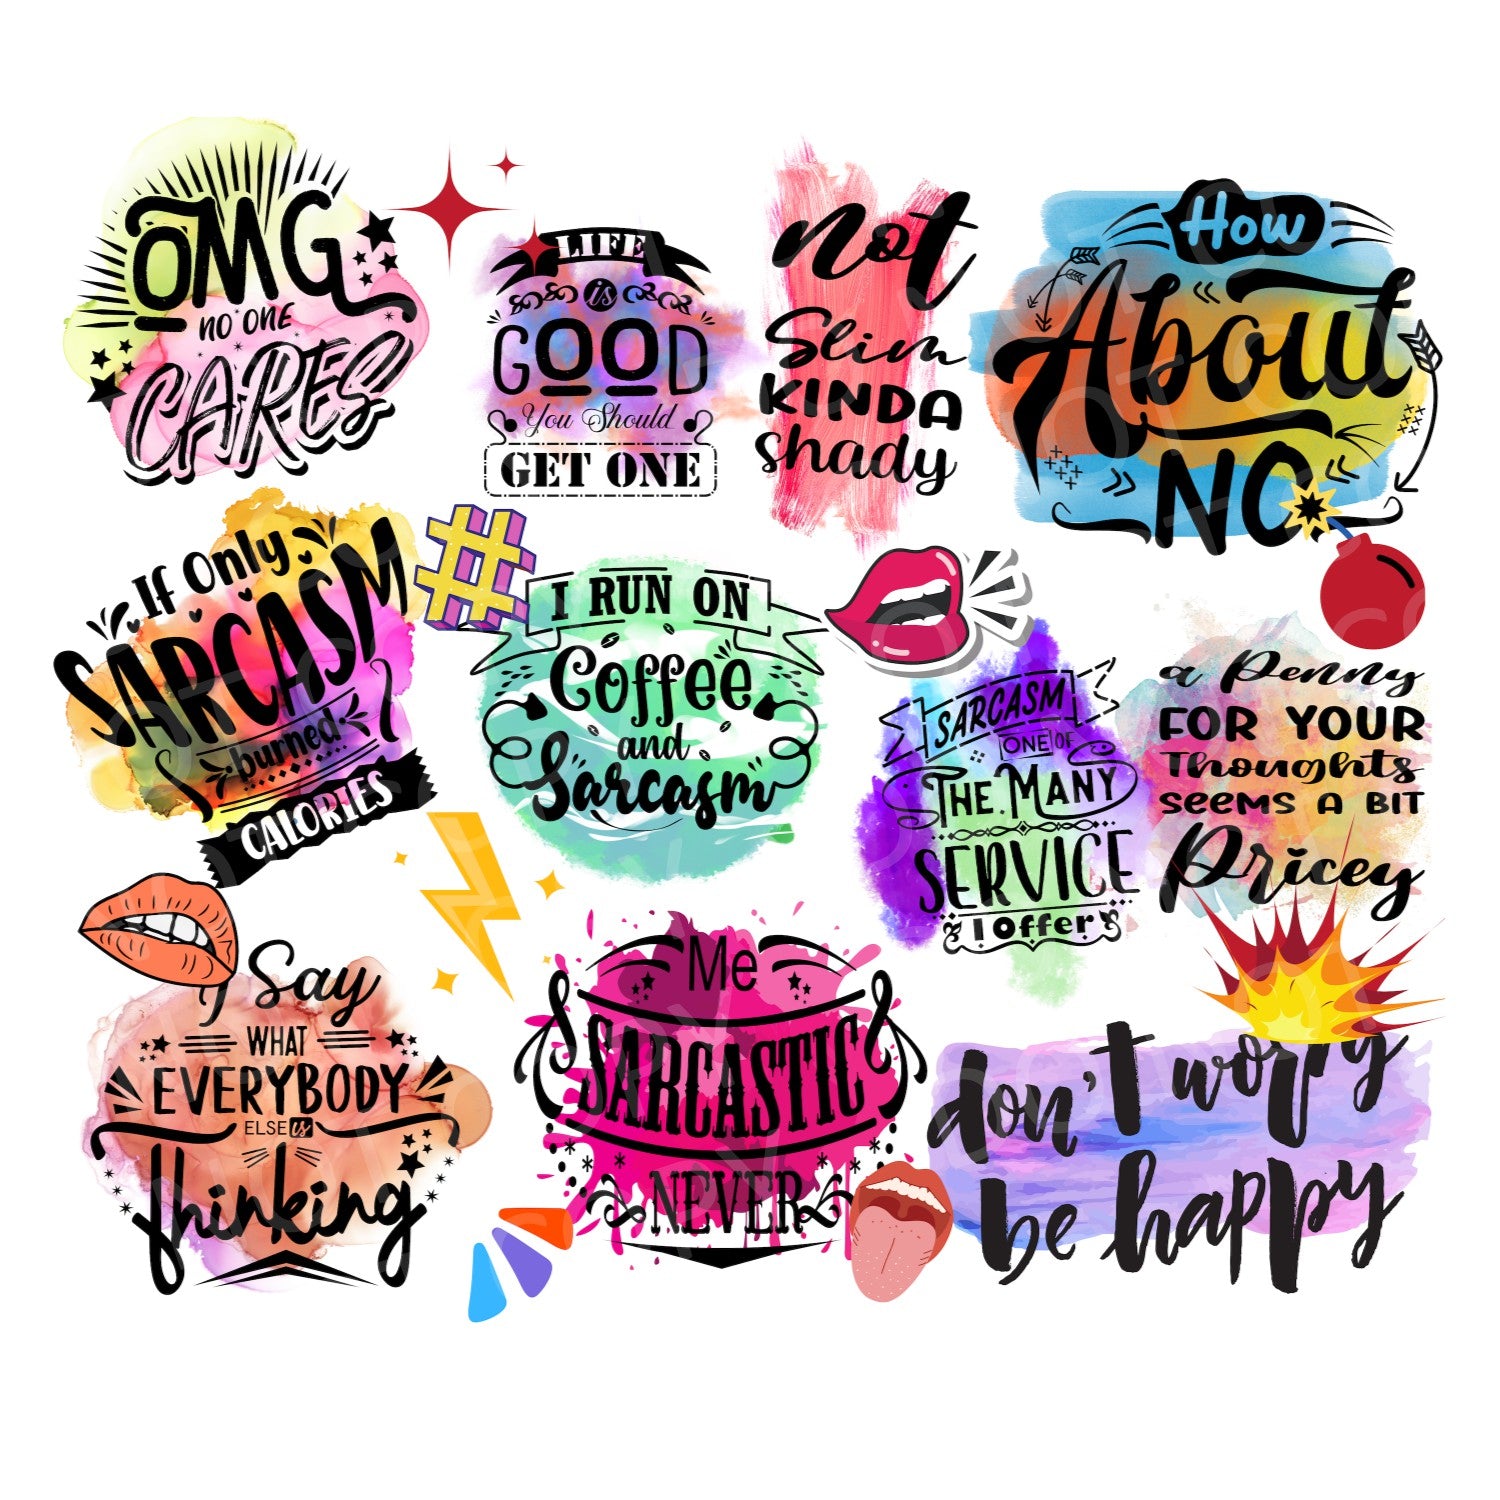 OMG
NO ONE
CARES
LIFE
is
GOOD
You Should
GET ONE
not
Slim
KINDA
shady
How
About
NO
If Only
SARCASM
burned
CALORIES
#
I RUN ON
Coffee
and
Sarcasm
SARCASM
ONE OF
THE MANY
SERVICE
I Offer
a Penny
FOR YOUR
Thoughts
SEEMS A BIT
Pricey
I Say
WHAT
EVERYBODY
ELSE is
Thinking
Me
SARCASTIC
NEVER
don't worry
be happy